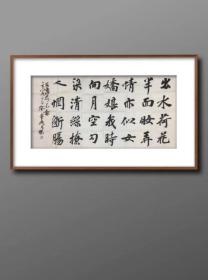 出水荷花
半面妝弄
情亦似女
嬌娘我時
向月空勾
染清絲撩
人惆斷腸